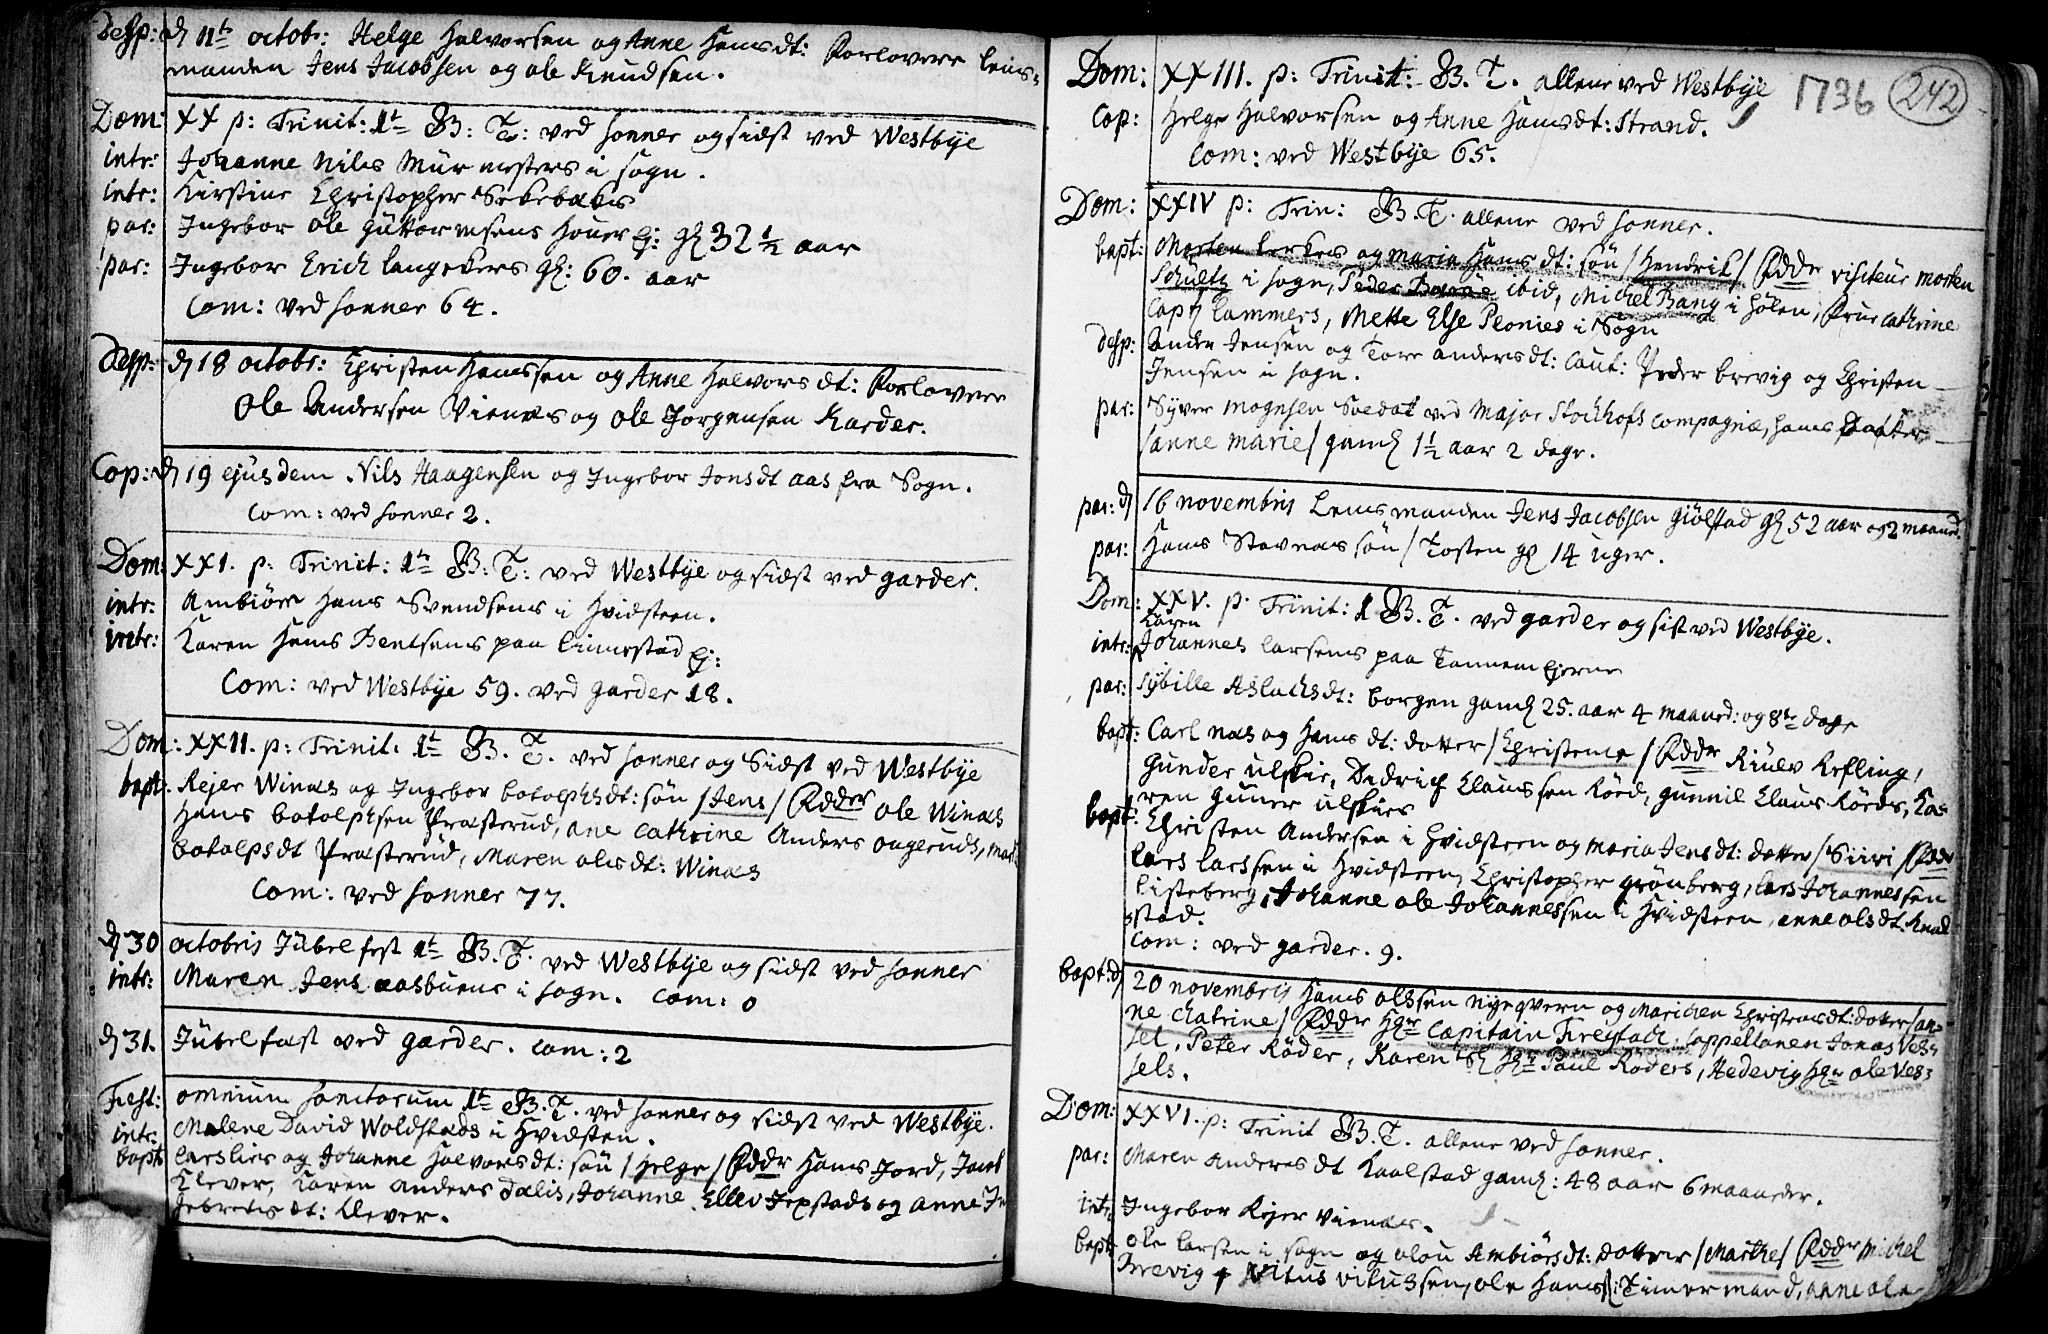 Desp: d 11te octob: Helge Halvorsen og Anne Hansdt: Forlovere lens-
manden Jens Jacobsen og ole Knudsen.
Dom: XX p: Trinit: 1te B: T: ved sonner og sidst ved Westbÿe
intr: Johanne Nils Mürmesters i sogn.
intr: Kirstine Christopher
par: Ingebor ole Guttormsens Houer Ej: gl 32 1/2 aar
par: Ingebor Erich langekers gl: 60. aar
Com: ved sonner 64.
Desp: d 18 octobr: Christen Hanssen og Anne Halvorsdt: Forlovere
Ole Andersen Vienæs og ole Jorgensen Karder.
Cop: d 19 ejusdem Nils Haagensen og Ingebor Jonsdt aas fra Sogn.
Com: ved sonner 2.
Dom: XXI. p: Trinit: 1te B: T: ved Westbÿe og sidst ved garder.
intr: Ambiör Hans Svendsens i Hvidsteen.
intr: Karen Hans Bentsens paa Linnestad Ej:
Com: ved Westbÿe 59. ved garder 18.
Dom: XXII. p: Trinit. 1te B. T. ved sonner og Sidst ved Westbÿe
bapt: Rejer Winæs og Ingebor botolphsdt: sön /Jens/ Fddr ole Winæs
Hans botolphsen Præsterud, ane cathrine Anders ongeruds, mari
botolpsdt Præsterud, Maren olesdt: Winæs
Com: ved sonner 77.
d 30 octobris Jübel fest 1te B. T. ved Westbÿe og sidst ved sonner
intr: Maren Jens aasbuens i sogn. Com: 0
d 31. Jübelfæst ved garder. com: 2
Fest: omnium sanctorum 1te B. T. ved sonner og sidst ved Westbÿe.
intr: Malene David Woldstads i Hvidsten.
bapt: lars lies og Johanne Halvorsdt: sön /Helge/ Fddr Hans Jord, Jacob
Klever, Karen anders Dælis, Johanne Ellev Jepstads og Anne In
gebretsdt: Klever.
1736 242
Dom: XXIII. p: Trinit: B. T. allene ved Westbÿe
Cop: Helge Halvorsen og Anne Hansdt: Strand.
Com: ved Westbÿe 65.
Dom: XXIV p: Trin: B. T. allene ved sonner.
bapt: Morten lerkes og maria Hansdt: sön /Hendrik/ Fddr visiteur morten
Schultz i sogn, Peder ibid, Michel Bang i hölen, Frue cathrine
Capt lammers, Mette Else Peonies i Sogn
desp: Ander Jensen og Tore andersdt: Caut: Peder brevig og Christen
Jensen i sogn.
par: Syver mognsen Soldat ved Major Stockhofs Compagnie, hans Datter
/anne marie/ gaml 1 1/2 aar 2 dage.
par: d 16 novembris Lensmanden Jens Jacobsen Giölstad gl 52 aar og 2 maaned.
par: Hans Stovnes sön /Tosten gl 14 uger.
Dom: XXV. p. Trinit: 1 B. T. ved garder og sist ved Westbÿe.
Karen
intr: Johannes larsens paa Tannem Ejerne
par: Sÿbille Aslachsdt: borgen gaml 25. aar 4 maaned: og 8te dage
bapt: Carl næs og Hansdt: dotter /Christense/ Fddr Riulv Kefling,
Gunder ulskie, Didrich Claussen Röed, gunnil Claus Röeds, Ka-
ren Guner ulskies
bapt: Christen Andersen i Hvidsteen og maria Jensdt: dotter /Siiri/ Fddr
lars larssen i Hvidsteen, Christopher grönberg, lars Johannessen
listeberg, Johanne ole Johannessen i Hvidsteen, anne olsdt.
stad.
Com: ved garder. 9.
bapt: d 20 novembris Hans olssen nÿeqvern og Marichen Christensdt: dotter /an-
ne Chatrine/ Fddr Hgr Capitain Cappellanen Jonas Ves-
sel, Peter Röder, Karen Sl Hgr Paul Röders, Hedevig Hgr ole Ves-
sels.
Dom: XXVI. p: Trinit B. T. allene ved sonner.
par: Maren Anders dt Kaalstad gaml: 48 aar 6 maaneder.
intr: Ingebor Rejer Vienæs.
bapt: ole larsen i sogn og olou Ambiörsdt: dotter /Marthe/ Fddr Michel
Brevig Vitus Vitussen, ole Hans: Timermand, anne ole